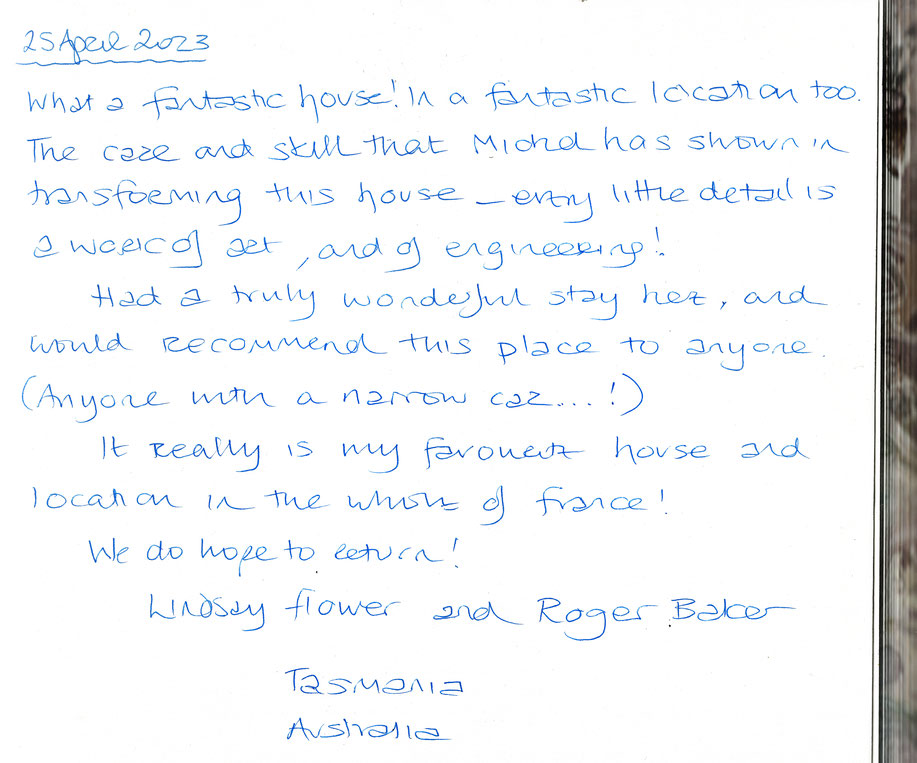 25 April 2023
What a fantastic house! In a fantastic location too.
The care and skill that Michel has shown in
transforming this house – every little detail is
a work of art, and of engineering!
Had a truly wonderful stay here, and
would recommend this place to anyone.
(Anyone with a narrow car...!)
It really is my favourite house and
location in the whole of France!
We do hope to return!
Lindsay Flower and Roger Baker
Tasmania
Australia